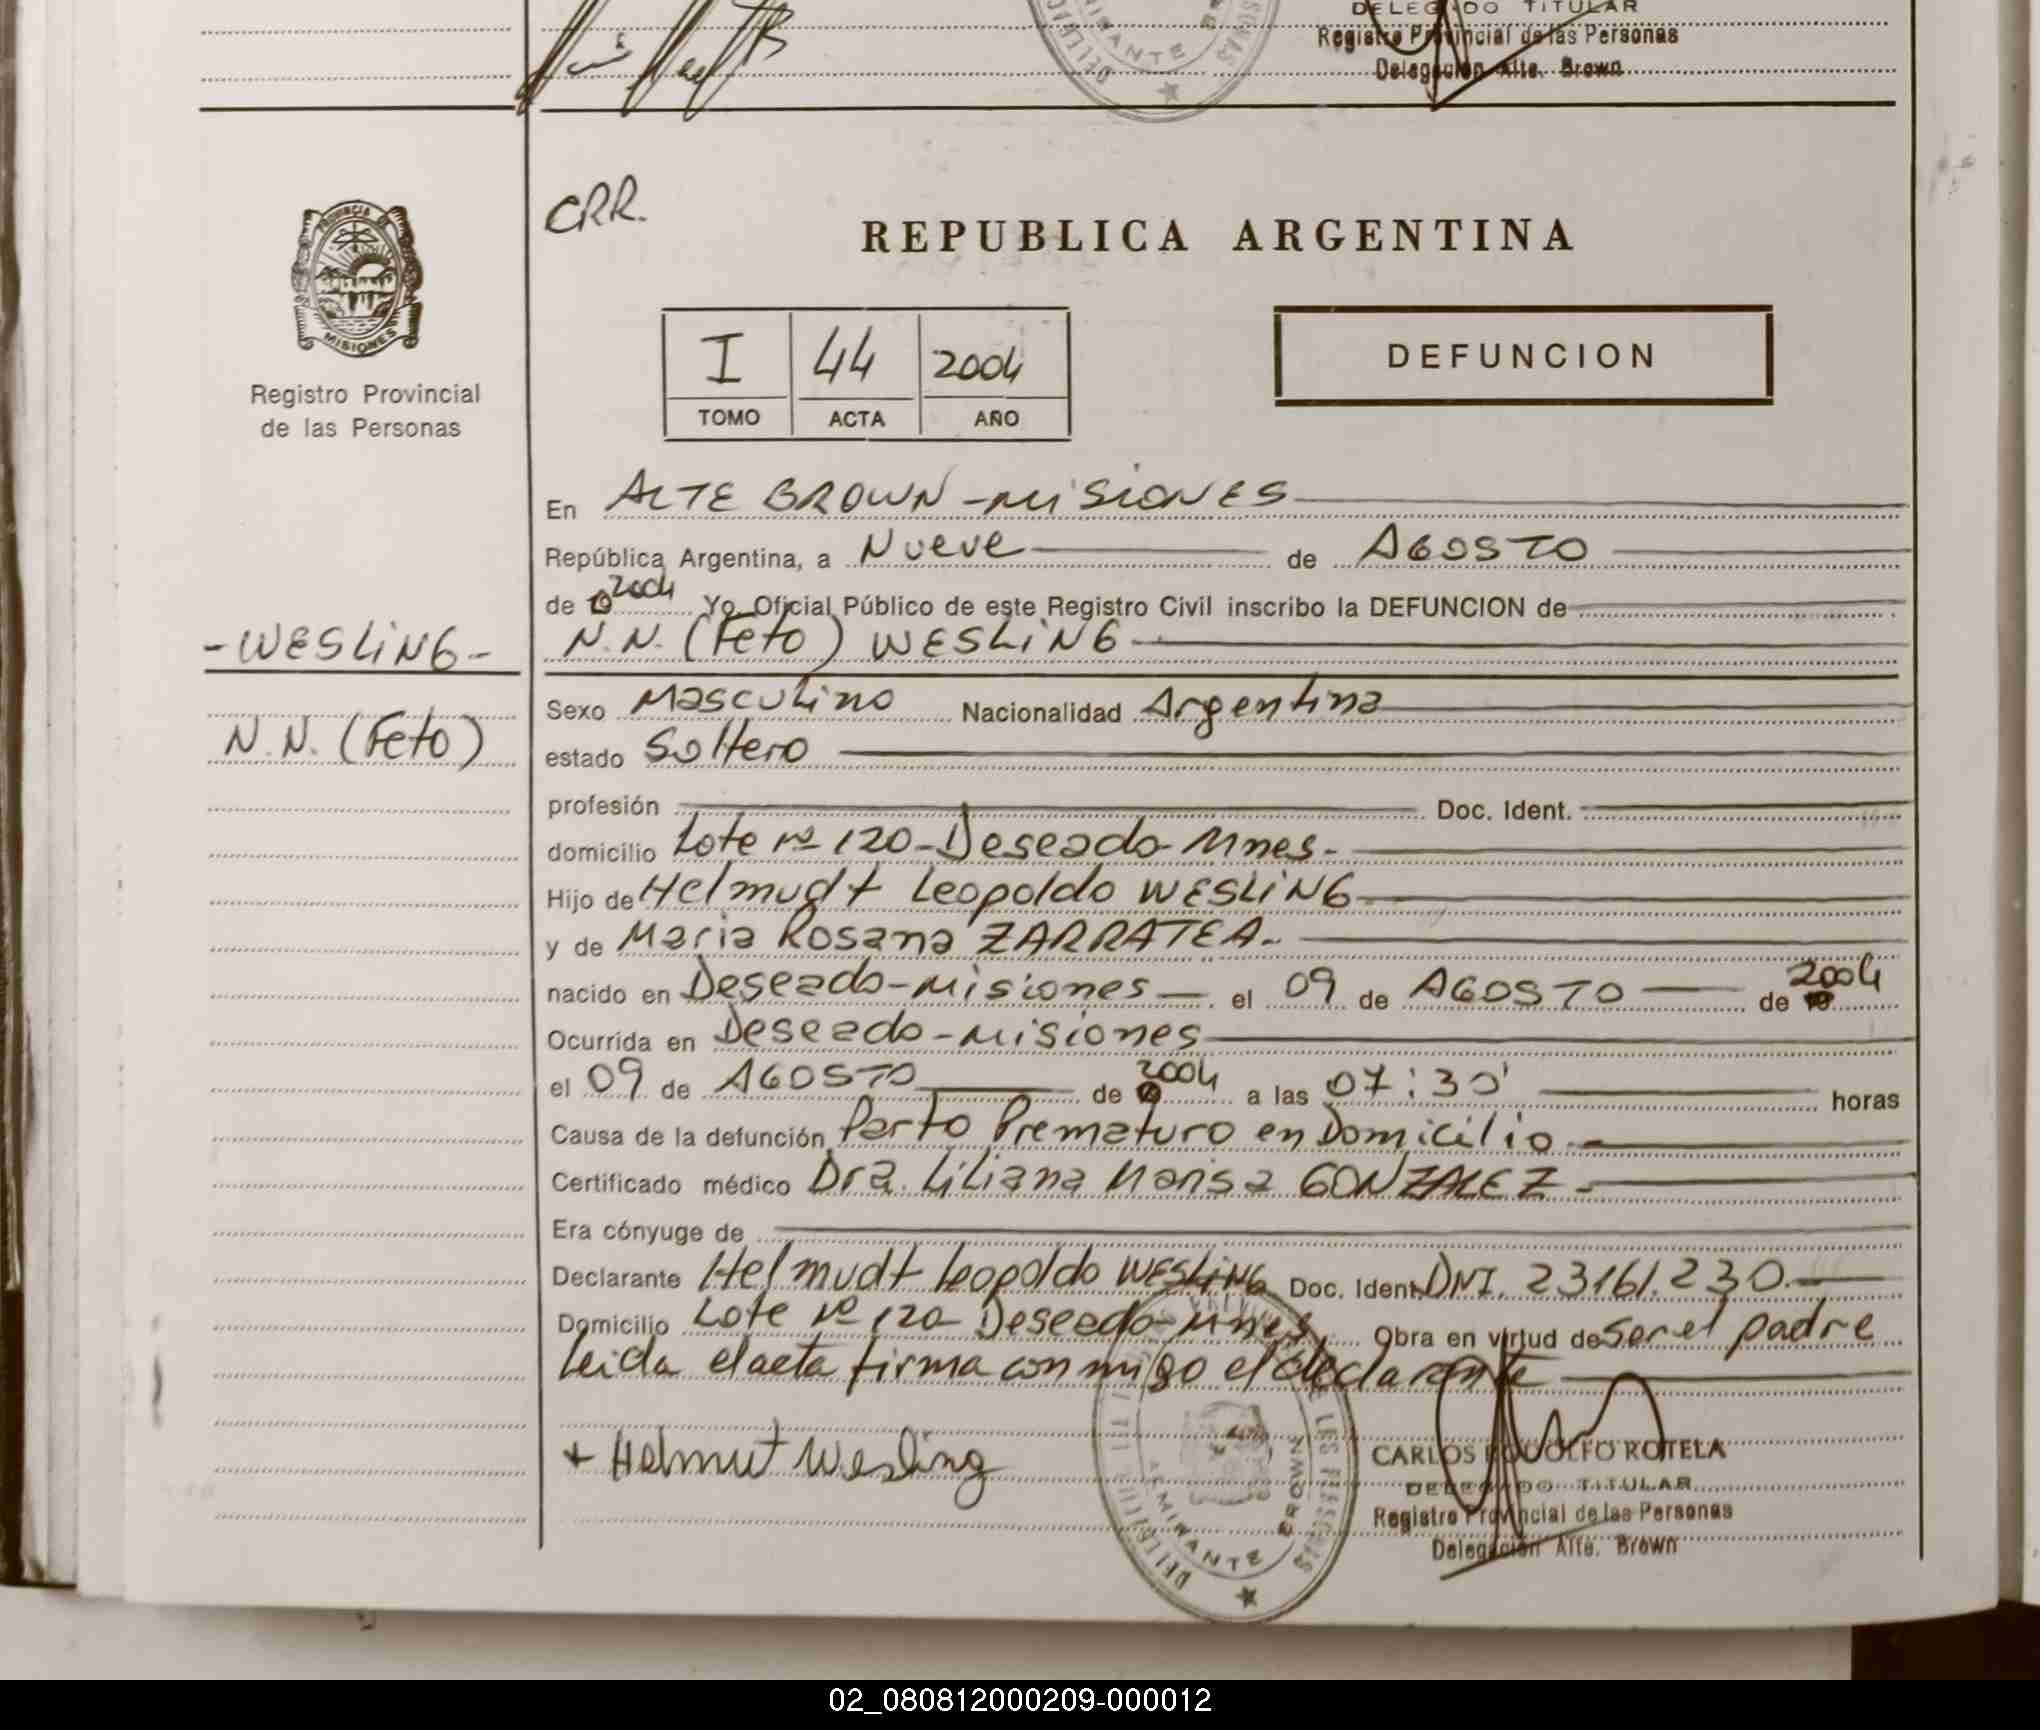 DELEGADO TITULAR
Registro Provincial de las Personas
Delegación Alte. Brown
CRR.
REPUBLICA ARGENTINA
PROVINCIA DE
MISIONES
Registro Provincial
de las Personas
I 44 2004
TOMO ACTA AÑO
DEFUNCION
En ALTE BROWN - MISIONES
República Argentina, a Nueve de AGOSTO
de 2004 Yo, Oficial Público de este Registro Civil inscribo la DEFUNCION de
-WESLING- N.N. (Feto) WESLING
Sexo Masculino Nacionalidad Argentina
N.N. (Feto)
estado Soltero
profesión Doc. Ident.
domicilio Lote Nº 120-Deseado-Mnes.
Hijo de Helmudt Leopoldo WESLING
y de Maria Rosana ZARRATEA.
nacido en Deseado-Misiones el 09 de AGOSTO de 2004
Ocurrida en Deseado-Misiones
el 09 de AGOSTO de 2004 a las 07:30' horas
Causa de la defunción Parto Prematuro en Domicilio.-
Certificado médico Dra. Liliana Marisa GONZALEZ-
Era cónyuge de
Declarante Helmudt Leopoldo WESLING Doc. Ident. DNI. 23161.230.
Domicilio Lote Nº 120 Deseado-Mnes, Obra en virtud de Ser el padre
Leida el acta firma conmigo el declarante
+ Helmut Wesling
ALMIRANTE BROWN
CARLOS RODOLFO ROTELA
DELEGADO TITULAR
Registro Provincial de las Personas
Delegación Alte. Brown
02_080812000209-000012